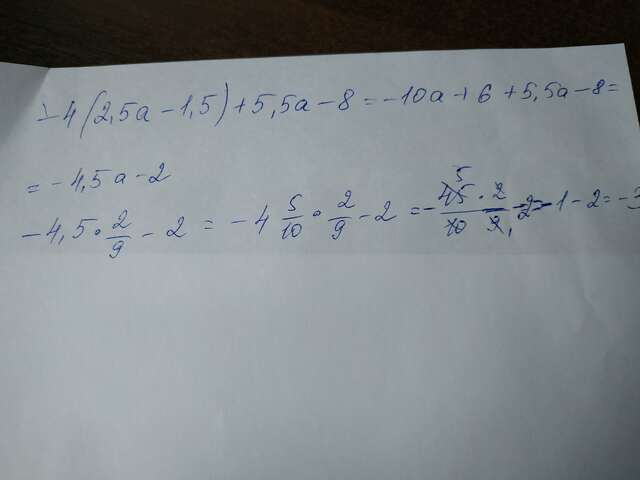 -4(2,5a-1,5)+5,5a-8=-10a+6+5,5a-8=
=-4,5a-2
-4,5·2/9-2=-4 5/10·2/9-2=-45·2/10·9-2=-1-2=-3